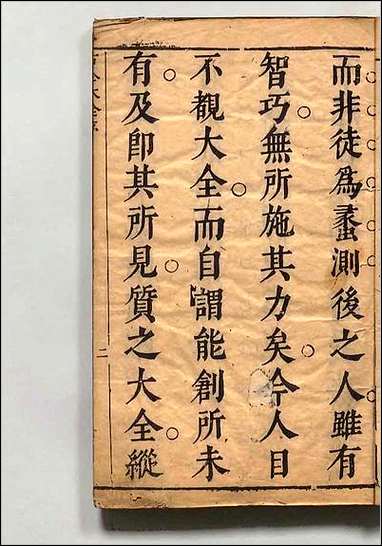 而非徒爲蠡測後之人雖有
智巧無所施其力矣今人目
不覩大全而自謂能創所未
有及卽其所見質之大全縱
二